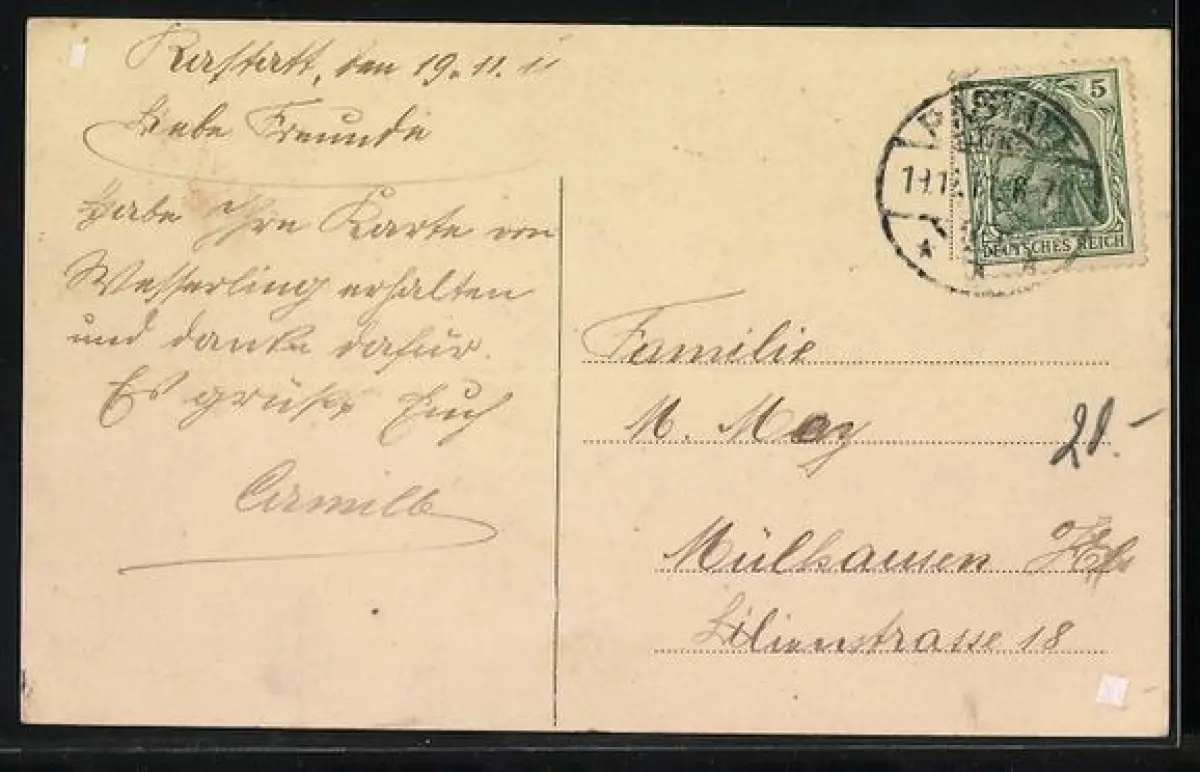 Rastatt, den 19.11.11
Liebe Freunde
Habe Ihre Karte von
Wesserling erhalten
und danke dafür.
Es grüßt Euch
Camille
5
RASTATT
DEUTSCHES REICH
Familie
M. May
21.-
Mülhausen Els
Lilienstrasse 18